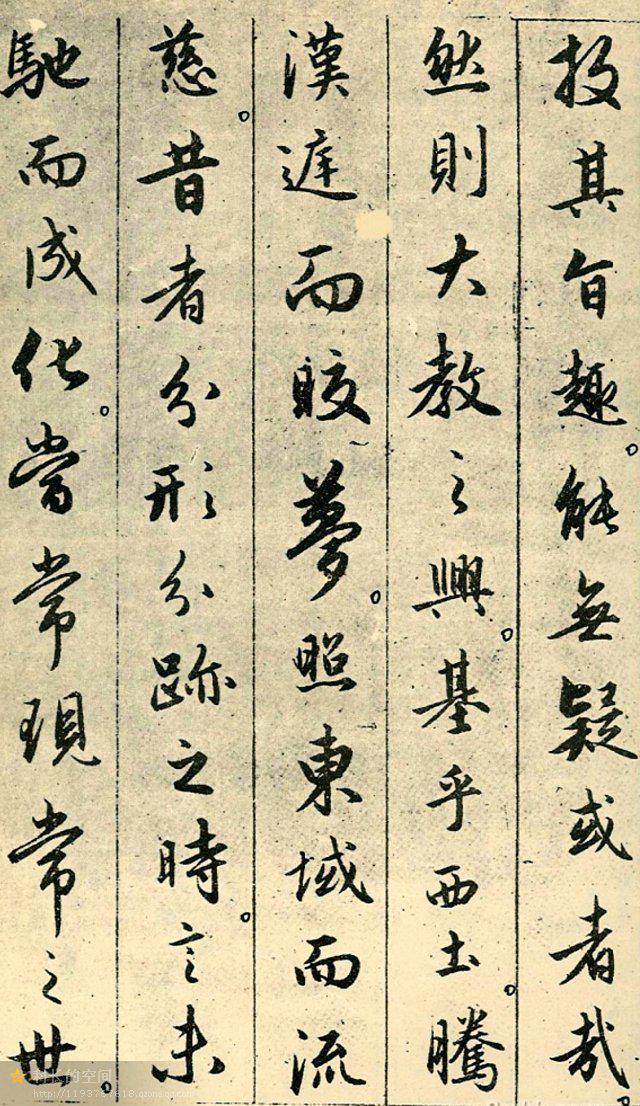 投其旨趣。能無疑或者哉。
然則大教之興。基乎西土。騰
漢遑而皎夢。照東域而流
慈。昔者分形分跡之時。言未
馳而成化。當常現常之世。
村长的空间
http://1193787618.qzone.qq.com